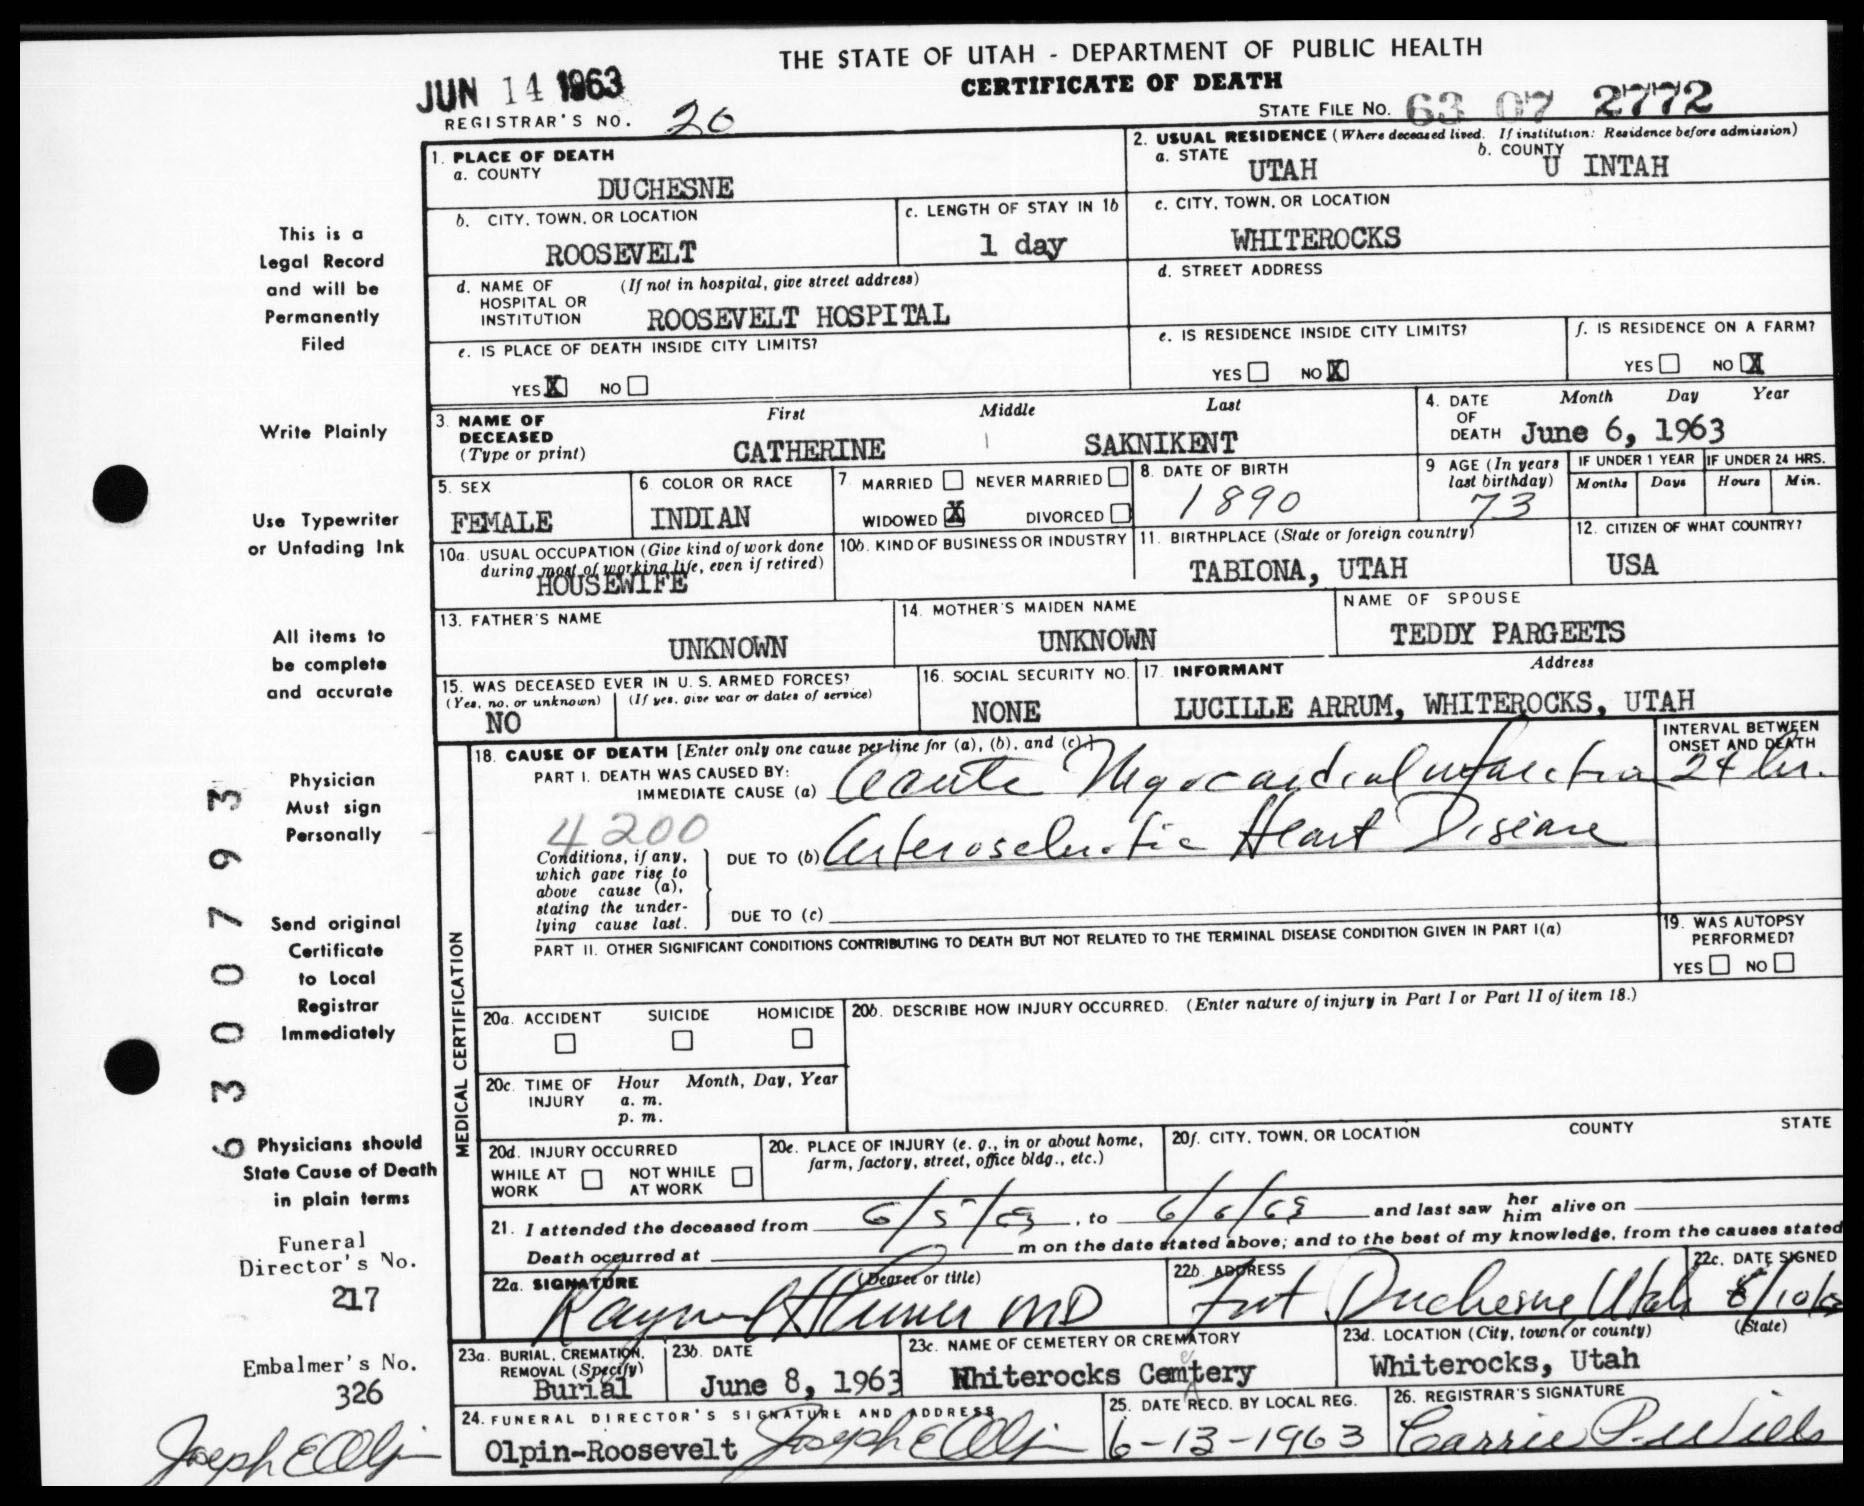 THE STATE OF UTAH - DEPARTMENT OF PUBLIC HEALTH
CERTIFICATE OF DEATH
JUN 14 1963
REGISTRAR'S NO. 26
STATE FILE NO. 63 07 2772
1. PLACE OF DEATH
a. COUNTY
DUCHESNE
2. USUAL RESIDENCE (Where deceased lived. If institution: Residence before admission)
a. STATE UTAH b. COUNTY U INTAH
b. CITY, TOWN, OR LOCATION
ROOSEVELT
c. LENGTH OF STAY IN 1b
1 day
c. CITY, TOWN, OR LOCATION
WHITEROCKS
d. NAME OF HOSPITAL OR INSTITUTION (If not in hospital, give street address)
ROOSEVELT HOSPITAL
d. STREET ADDRESS
e. IS PLACE OF DEATH INSIDE CITY LIMITS?
YES X NO
e. IS RESIDENCE INSIDE CITY LIMITS?
YES NO X
f. IS RESIDENCE ON A FARM?
YES NO X
3. NAME OF DECEASED (Type or print)
First Middle Last
CATHERINE SAKNIKENT
4. DATE OF DEATH Month Day Year
June 6, 1963
5. SEX
FEMALE
6. COLOR OR RACE
INDIAN
7. MARRIED NEVER MARRIED
WIDOWED X DIVORCED
8. DATE OF BIRTH
1890
9 AGE (In years last birthday)
73
IF UNDER 1 YEAR
Months Days
IF UNDER 24 HRS.
Hours Min.
10a. USUAL OCCUPATION (Give kind of work done during most of working life, even if retired)
HOUSEWIFE
10b. KIND OF BUSINESS OR INDUSTRY
11. BIRTHPLACE (State or foreign country)
TABIONA, UTAH
12. CITIZEN OF WHAT COUNTRY?
USA
13. FATHER'S NAME
UNKNOWN
14. MOTHER'S MAIDEN NAME
UNKNOWN
NAME OF SPOUSE
TEDDY PARGEETS
15. WAS DECEASED EVER IN U. S. ARMED FORCES?
(Yes, no, or unknown) (If yes, give war or dates of service)
NO
16. SOCIAL SECURITY NO.
NONE
17. INFORMANT Address
LUCILLE ARRUM, WHITEROCKS, UTAH
MEDICAL CERTIFICATION
18. CAUSE OF DEATH [Enter only one cause per line for (a), (b), and (c).]
INTERVAL BETWEEN ONSET AND DEATH
PART I. DEATH WAS CAUSED BY:
IMMEDIATE CAUSE (a) Acute Myocardial infarction 24 hr.
4200
Conditions, if any, which gave rise to above cause (a), stating the underlying cause last.
DUE TO (b) Arterosclerotic Heart Disease
DUE TO (c)
PART II. OTHER SIGNIFICANT CONDITIONS CONTRIBUTING TO DEATH BUT NOT RELATED TO THE TERMINAL DISEASE CONDITION GIVEN IN PART I(a)
19. WAS AUTOPSY PERFORMED?
YES NO
20a. ACCIDENT SUICIDE HOMICIDE
20b. DESCRIBE HOW INJURY OCCURRED. (Enter nature of injury in Part I or Part II of item 18.)
20c. TIME OF INJURY Hour Month, Day, Year
a. m.
p. m.
20d. INJURY OCCURRED
WHILE AT WORK NOT WHILE AT WORK
20e. PLACE OF INJURY (e. g., in or about home, farm, factory, street, office bldg., etc.)
20f. CITY, TOWN, OR LOCATION COUNTY STATE
21. I attended the deceased from 6/5/63, to 6/6/63 and last saw her him alive on
Death occurred at m on the date stated above; and to the best of my knowledge, from the causes stated
22a. SIGNATURE (Degree or title)
MD
22b. ADDRESS
Fort Duchesne, Utah
22c. DATE SIGNED
23a. BURIAL, CREMATION, REMOVAL (Specify)
Burial
23b. DATE
June 8, 1963
23c. NAME OF CEMETERY OR CREMATORY
Whiterocks Cemetery
23d. LOCATION (City, town, or county) (State)
Whiterocks, Utah
24. FUNERAL DIRECTOR'S SIGNATURE AND ADDRESS
Olpin-Roosevelt Joseph E Olpin
25. DATE RECD. BY LOCAL REG.
6-13-1963
26. REGISTRAR'S SIGNATURE
Carrie P.
This is a
Legal Record
and will be
Permanently
Filed
Write Plainly
Use Typewriter
or Unfading Ink
All items to
be complete
and accurate
Physician
Must sign
Personally
Send original
Certificate
to Local
Registrar
Immediately
Physicians should
State Cause of Death
in plain terms
Funeral
Director's No.
217
Embalmer's No.
326
Joseph E Olpin
6300793